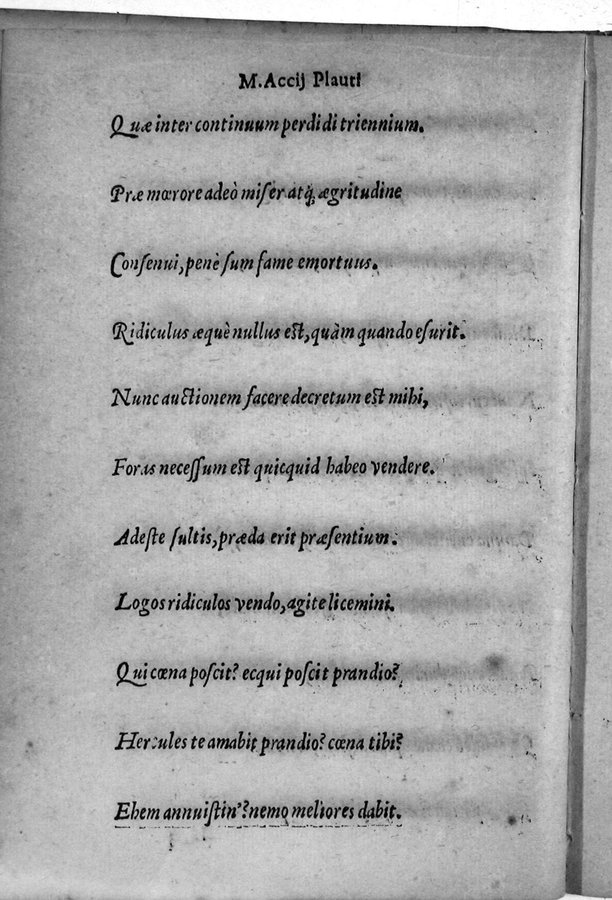 M. Accij Plauti
Quæ inter continuum perdidi triennium.
Præ mœrore adeò miser atq; ægritudine
Consenui, penè sum fame emortuus.
Ridiculus æquè nullus est, quàm quando esurit.
Nunc auctionem facere decretum est mihi,
Foras necessum est quicquid habeo vendere.
Adeste sultis, præda erit præsentium.
Logos ridiculos vendo, agite licemini.
Qui cœna poscit? ecqui poscit prandio?
Hercules te amabit prandio? cœna tibi?
Ehem annuistin'? nemo meliores dabit.